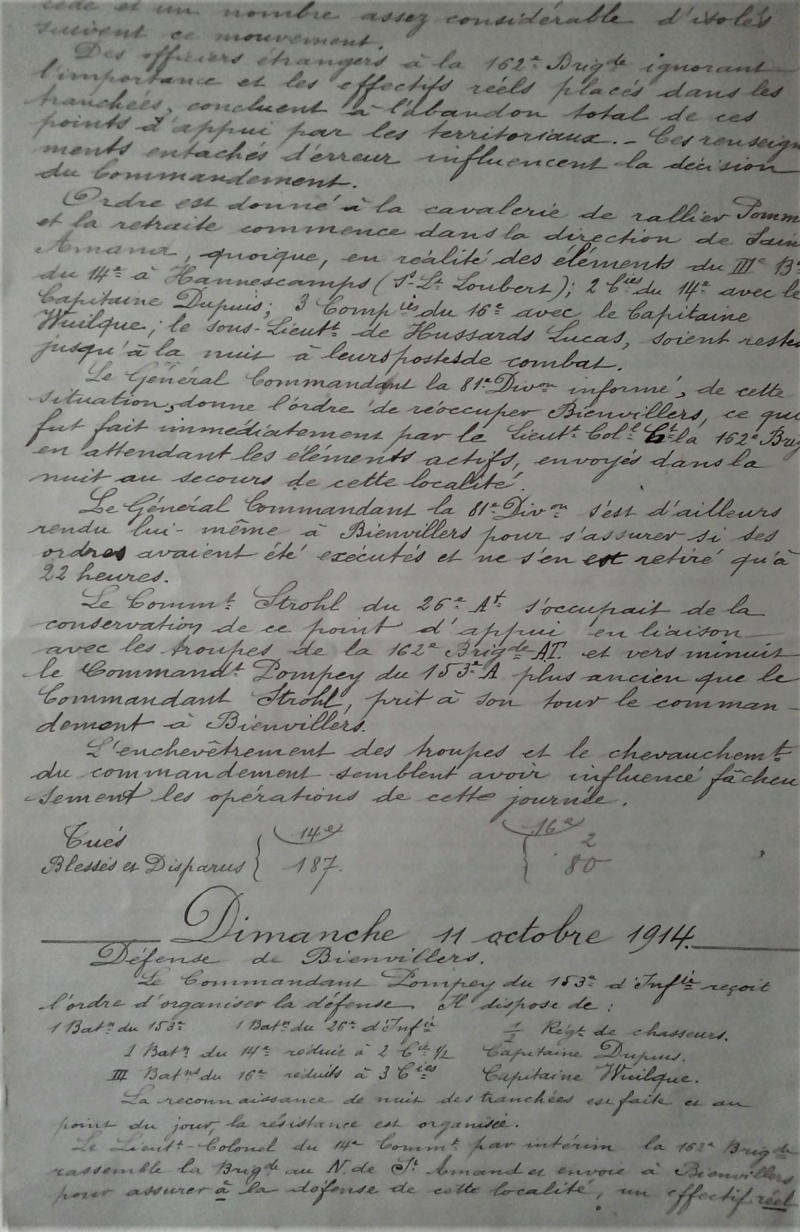 cède et un nombre assez considérable d'isolés
suivent ce mouvement.
Des officiers étrangers à la 162e Brigde ignorant
l'importance et les effectifs réels placés dans les
tranchées, concluent à l'abandon total de ces
points d'appui par les territoriaux. - Ces renseign
ments entachés d'erreur influencent la décision
du Commandement.
Ordre est donné à la cavalerie de rallier Pomm
et la retraite commence dans la direction de Sain
Amand, quoique, en réalité des éléments du IIIe B
du 14e à Hannescamps (St Lt Loubert); 2 Cies du 14e avec le
Capitaine Dupuis; 3 Compies du 16e avec le Capitaine
Wuilque; le sous-Lieutt de Hussards Lucas, soient restés
jusqu'à la nuit à leurs postes de combat.
Le Général Commandant la 81e Divon informé, de cette
situation, donne l'ordre de réoccuper Bienvillers, ce qui
fut fait immédiatement par le Lieutt Colel Ct la 162e Brig
en attendant les éléments actifs, envoyés dans la
nuit au secours de cette localité.
Le Général Commandant la 81e Divon s'est d'ailleurs
rendu lui-même à Bienvillers pour s'assurer si ses
ordres avaient été exécutés et ne s'en est retiré qu'à
22 heures.
Le Commt Strohl du 26e At s'occupait de la
conservation de ce point d'appui en liaison
avec les troupes de la 162e Brigde AT. et vers minuit
le Commandt Pompey du 153e A plus ancien que le
Commandant Strohl, prit à son tour le comman-
dement à Bienvillers.
L'enchevêtrement des troupes et le chevauchemt
du commandement semblent avoir influencé fâcheu
sement les opérations de cette journée.
14e 16e
Tués 2
Blessés et Disparus 187. 80
Dimanche 11 octobre 1914.
Défense de Bienvillers.
Le Commandant Pompey du 153e d'Infie reçoit
l'ordre d'organiser la défense. Il dispose de :
1 Baton du 153e 1 Baton du 26e d'Infie 1/2 Régt de chasseurs.
1 Baton du 14e réduit à 2 Cies 1/2 Capitaine Dupuis.
III Batons du 16e réduits à 3 Cies Capitaine Wuilque.
La reconnaissance de nuit des tranchées est faite et au
point du jour, la résistance est organisée.
Le Lieutt-Colonel du 14e Commt par intérim la 162e Brigde
rassemble la Brigde au N. de St Amand et envoie à Bienvillers
pour assurer à la défense de cette localité, un effectif réel